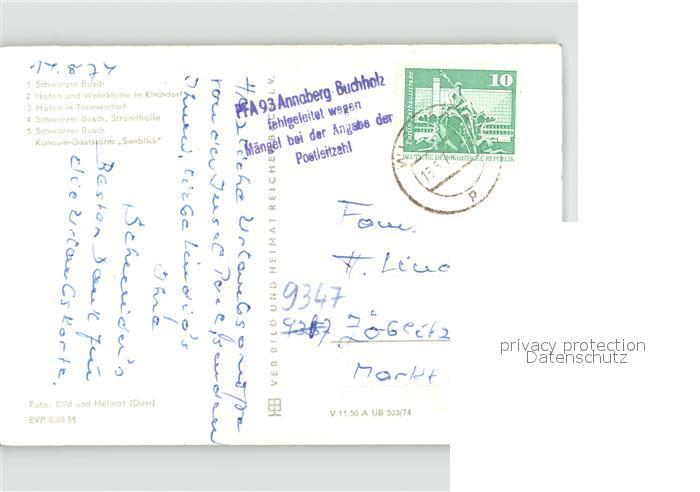 14.8.74
1 Schwarzer Busch
2 Hafen und Wehrkirche in Kirchdorf
3 Hafen in Timmendorf
4 Schwarzer Busch, Strandhalle
5 Schwarzer Busch
Konsum-Gaststätte „Seeblick"
Herzliche Urlaubsgrüße
von der Insel Poel senden
Ihnen, liebe Lindig's
Ihre
Schneider's
Besten Dank für
die Urlaubskarte.
Foto: Bild und Heimat (Darr)
EVP 0,20 M
VEB BILD UND HEIMAT REICHENBACH I. V.
V 11 50 A 1/B 503/74
PFA 93 Annaberg Buchholz
fehlgeleitet wegen
Mängel bei der Angabe der
Postleitzahl
10
Berlin, Rathausstraße
DEUTSCHE DEMOKRATISCHE REPUBLIK
P
Fam.
H. Lind
9347
Zöblitz
Markt
privacy protection
Datenschutz